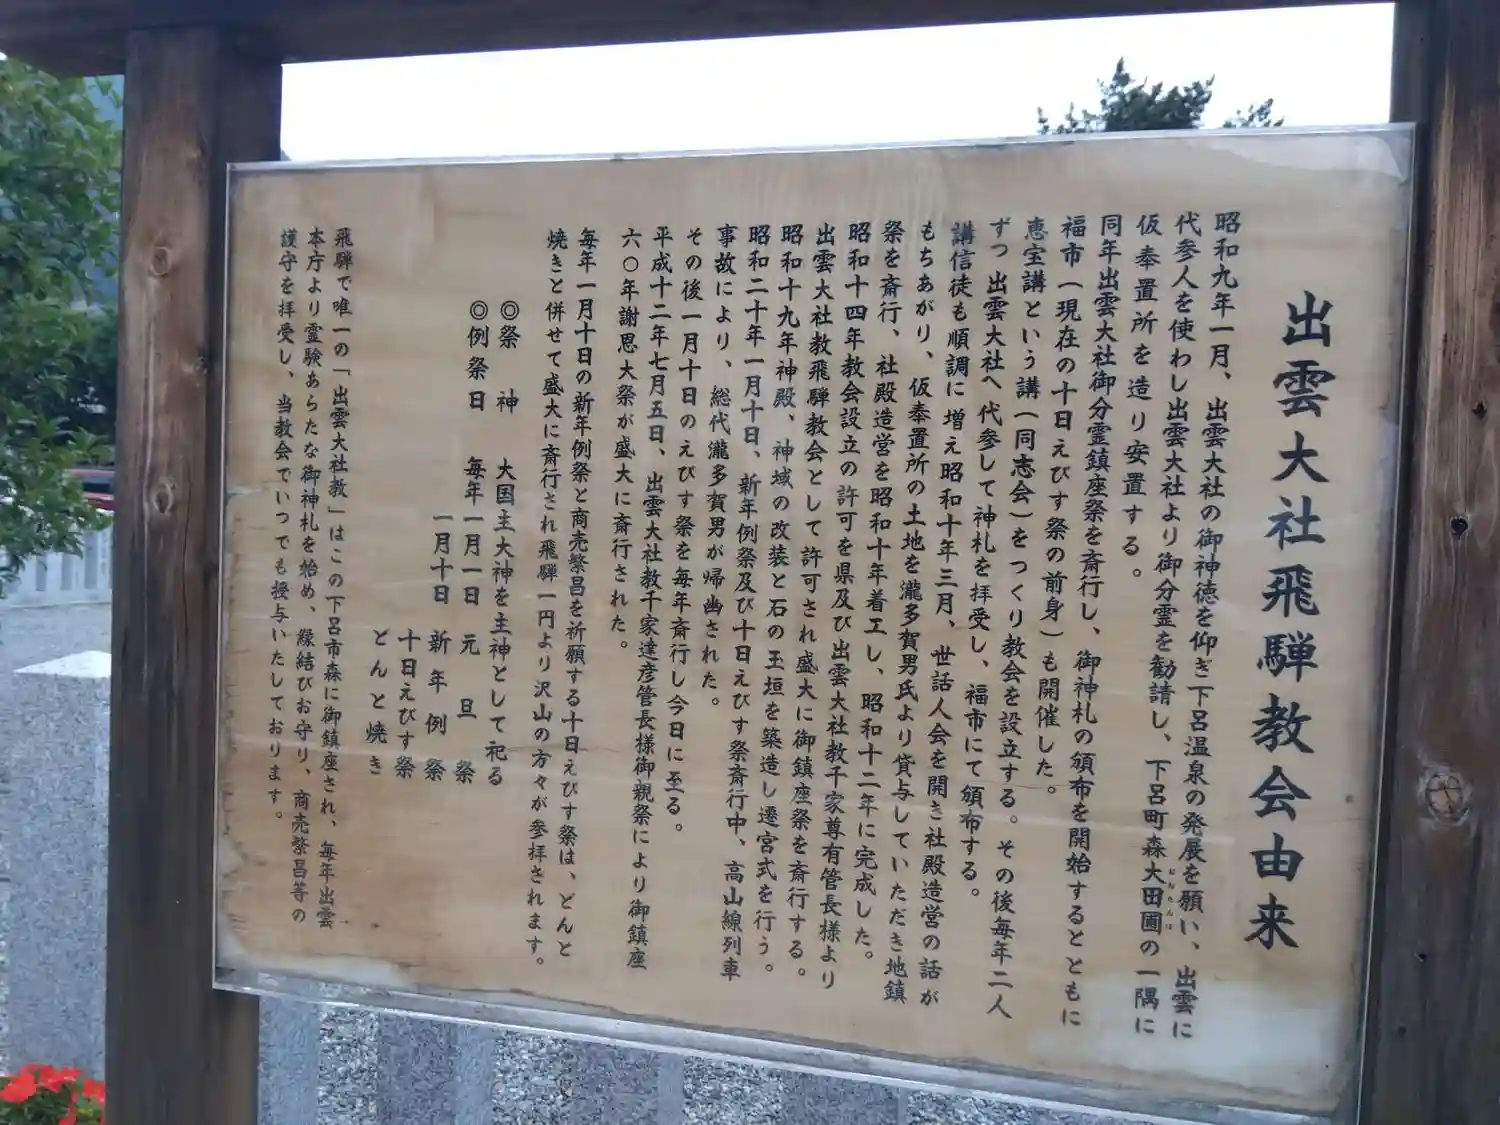 出雲大社飛騨教会由来
昭和九年一月、出雲大社の御神徳を仰ぎ下呂温泉の発展を願い、出雲に
代参人を使わし出雲大社より御分霊を勧請し、下呂町森大田圃の一隅に
おおたんぼ
仮奉置所を造り安置する。
同年出雲大社御分霊鎮座祭を斎行し、御神札の頒布を開始するとともに
福市(現在の十日えびす祭の前身)も開催した。
恵宝講という講(同志会)をつくり教会を設立する。その後毎年二人
ずつ出雲大社へ代参して神札を拝受し、福市にて頒布する。
講信徒も順調に増え昭和十年三月、世話人会を開き社殿造営の話が
もちあがり、仮奉置所の土地を瀧多賀男氏より貸与していただき地鎮
祭を斎行、社殿造営を昭和十年着工し、昭和十二年に完成した。
昭和十四年教会設立の許可を県及び出雲大社教千家尊有管長様より
出雲大社教飛騨教会として許可され盛大に御鎮座祭を斎行する。
昭和十九年神殿、神域の改装と石の玉垣を築造し遷宮式を行う。
昭和二十年一月十日、新年例祭及び十日えびす祭斎行中、高山線列車
事故により、総代瀧多賀男が帰幽された。
その後一月十日のえびす祭を毎年斎行し今日に至る。
平成十二年七月五日、出雲大社教千家達彦管長様御親祭により御鎮座
六〇年謝恩大祭が盛大に斎行された。
毎年一月十日の新年例祭と商売繁昌を祈願する十日えびす祭は、どんと
焼きと併せて盛大に斎行され飛騨一円より沢山の方々が参拝されます。
◎祭　神　大国主大神を主神として祀る
◎例祭日　毎年一月一日　元旦祭
一月十日　新年例祭
十日えびす祭
どんと焼き
飛騨で唯一の「出雲大社教」はこの下呂市森に御鎮座され、毎年出雲
本庁より霊験あらたな御神札を始め、縁結びお守り、商売繁昌等の
護守を拝受し、当教会でいつでも授与いたしております。